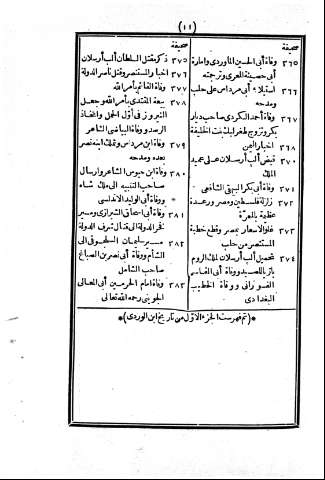 (١١)
صحيفة
٣٦٥ وفاة أبى الحسين الماوردى وامارة
أبى حصينة المعرى وترجمته
٣٦٦ استيلاء أبى مرداس على حلب
ومدحه
٣٦٧ وفاة أحمد الكردى صاحب ديار
بكر وتزوج طغرلبك بنت الخليفة
٣٦٨ اخبار اليمن
٣٧٠ قبض ألب أرسلان على عميد
الملك
٣٧١ وفاة أبى بكر البيهقى الشافعى
٣٧٢ زلزلة فلسطين ومصر ورعدة
عظيمة بالمعرة
٣٧٣ غلو الاسعار بمصر وقطع خطبة
المستنصر من حلب
٣٧٤ تحميل ألب أرسلان ملك الروم
بازاللصيد ووفاة أبى القاسم
الفورانى ووفاة الخطيب
البغدادى
صحيفة
٣٧٥ ذكر مقتل السلطان ألب أرسلان
٣٧٦ اخبار المستنصر وقتل ناصر الدولة
٣٧٧ وفاة القائم بأمر الله
٣٧٨ بيعة المقتدى بأمر الله وجعل
النيروز فى أول الحمل واتخاذ
الرصد ووفاة البياضى الشاعر
٣٧٩ وفاة ابن مرداس وتملك ابنه نصر
بعده ومدحه
٣٨٠ وفاة ابن حيوس الشاعر وارسال
صاحب التنبيه الى ملك شاه
ووفاة أبى الوليد الاندلسى
٣٨١ وفاة أبى اسحاق الشيرازى ومسير
فخر الدولة الى قتال شرف الدولة
٣٨٢ مسير سليمان السلجوقى الى
الشأم ووفاة أبى نصر بن الصباغ
صاحب الشامل
٣٨٣ وفاة امام الحرمين أبى المعالى
الجوينى رحمه الله تعالى
*(تم فهرست الجزء الاول من تاريخ ابن الوردى)*